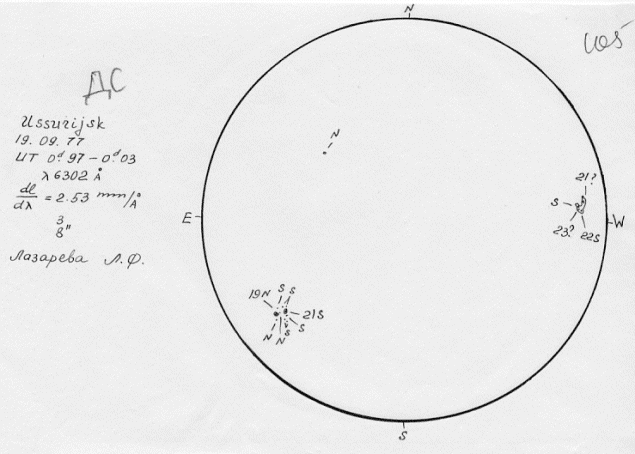 ДС
Ussurijsk
19.09.77
UT 0ᵈ.97 – 0ᵈ.03
λ 6302 Å
dl/dλ = 2.53 mm/Å
3
8"
Лазарева Л.Ф.
N
N
21?
S
E
W
23?
22S
19N
S
S
21S
S
S
N
N
S